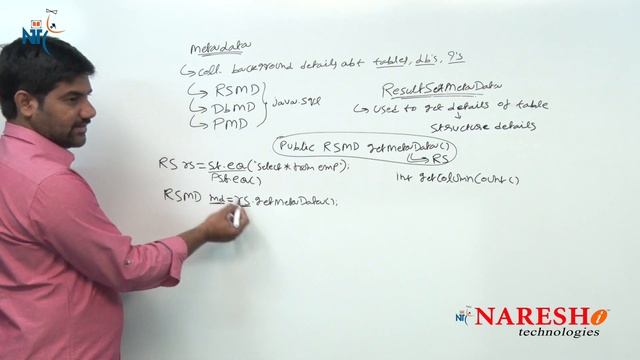 Metadata
↳ coll. background details abt tables, db's, ?'s
↳ RSMD
↳ DbMD
↳ PMD
Java.sql
ResultSetMetaData
↳ used to get details of table
↳ structure details
Public RSMD getMetaData()
↳ RS
RS rs = st.eQ("select * from emp");
Pst.eQ()
int getColumnCount()
RSMD md = rs.getMetaData();
NARESH i
technologies